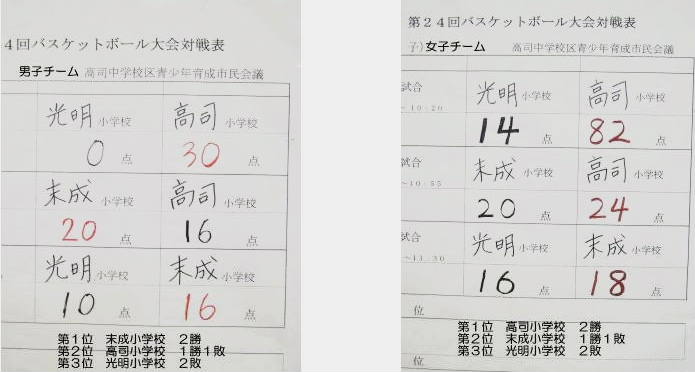 4回バスケットボール大会対戦表
男子チーム 高司中学校区青少年育成市民会議
光明小学校 高司小学校
0点 30点
末成小学校 高司小学校
20点 16点
光明小学校 末成小学校
10点 16点
第1位 末成小学校 2勝
第2位 高司小学校 1勝1敗
第3位 光明小学校 2敗
第24回バスケットボール大会対戦表
子)女子チーム 高司中学校区青少年育成市民会議
試合 光明小学校 高司小学校
~10:20 14点 82点
試合 末成小学校 高司小学校
~10:55 20点 24点
試合 光明小学校 末成小学校
~11:30 16点 18点
位
第1位 高司小学校 2勝
第2位 末成小学校 1勝1敗
第3位 光明小学校 2敗
位